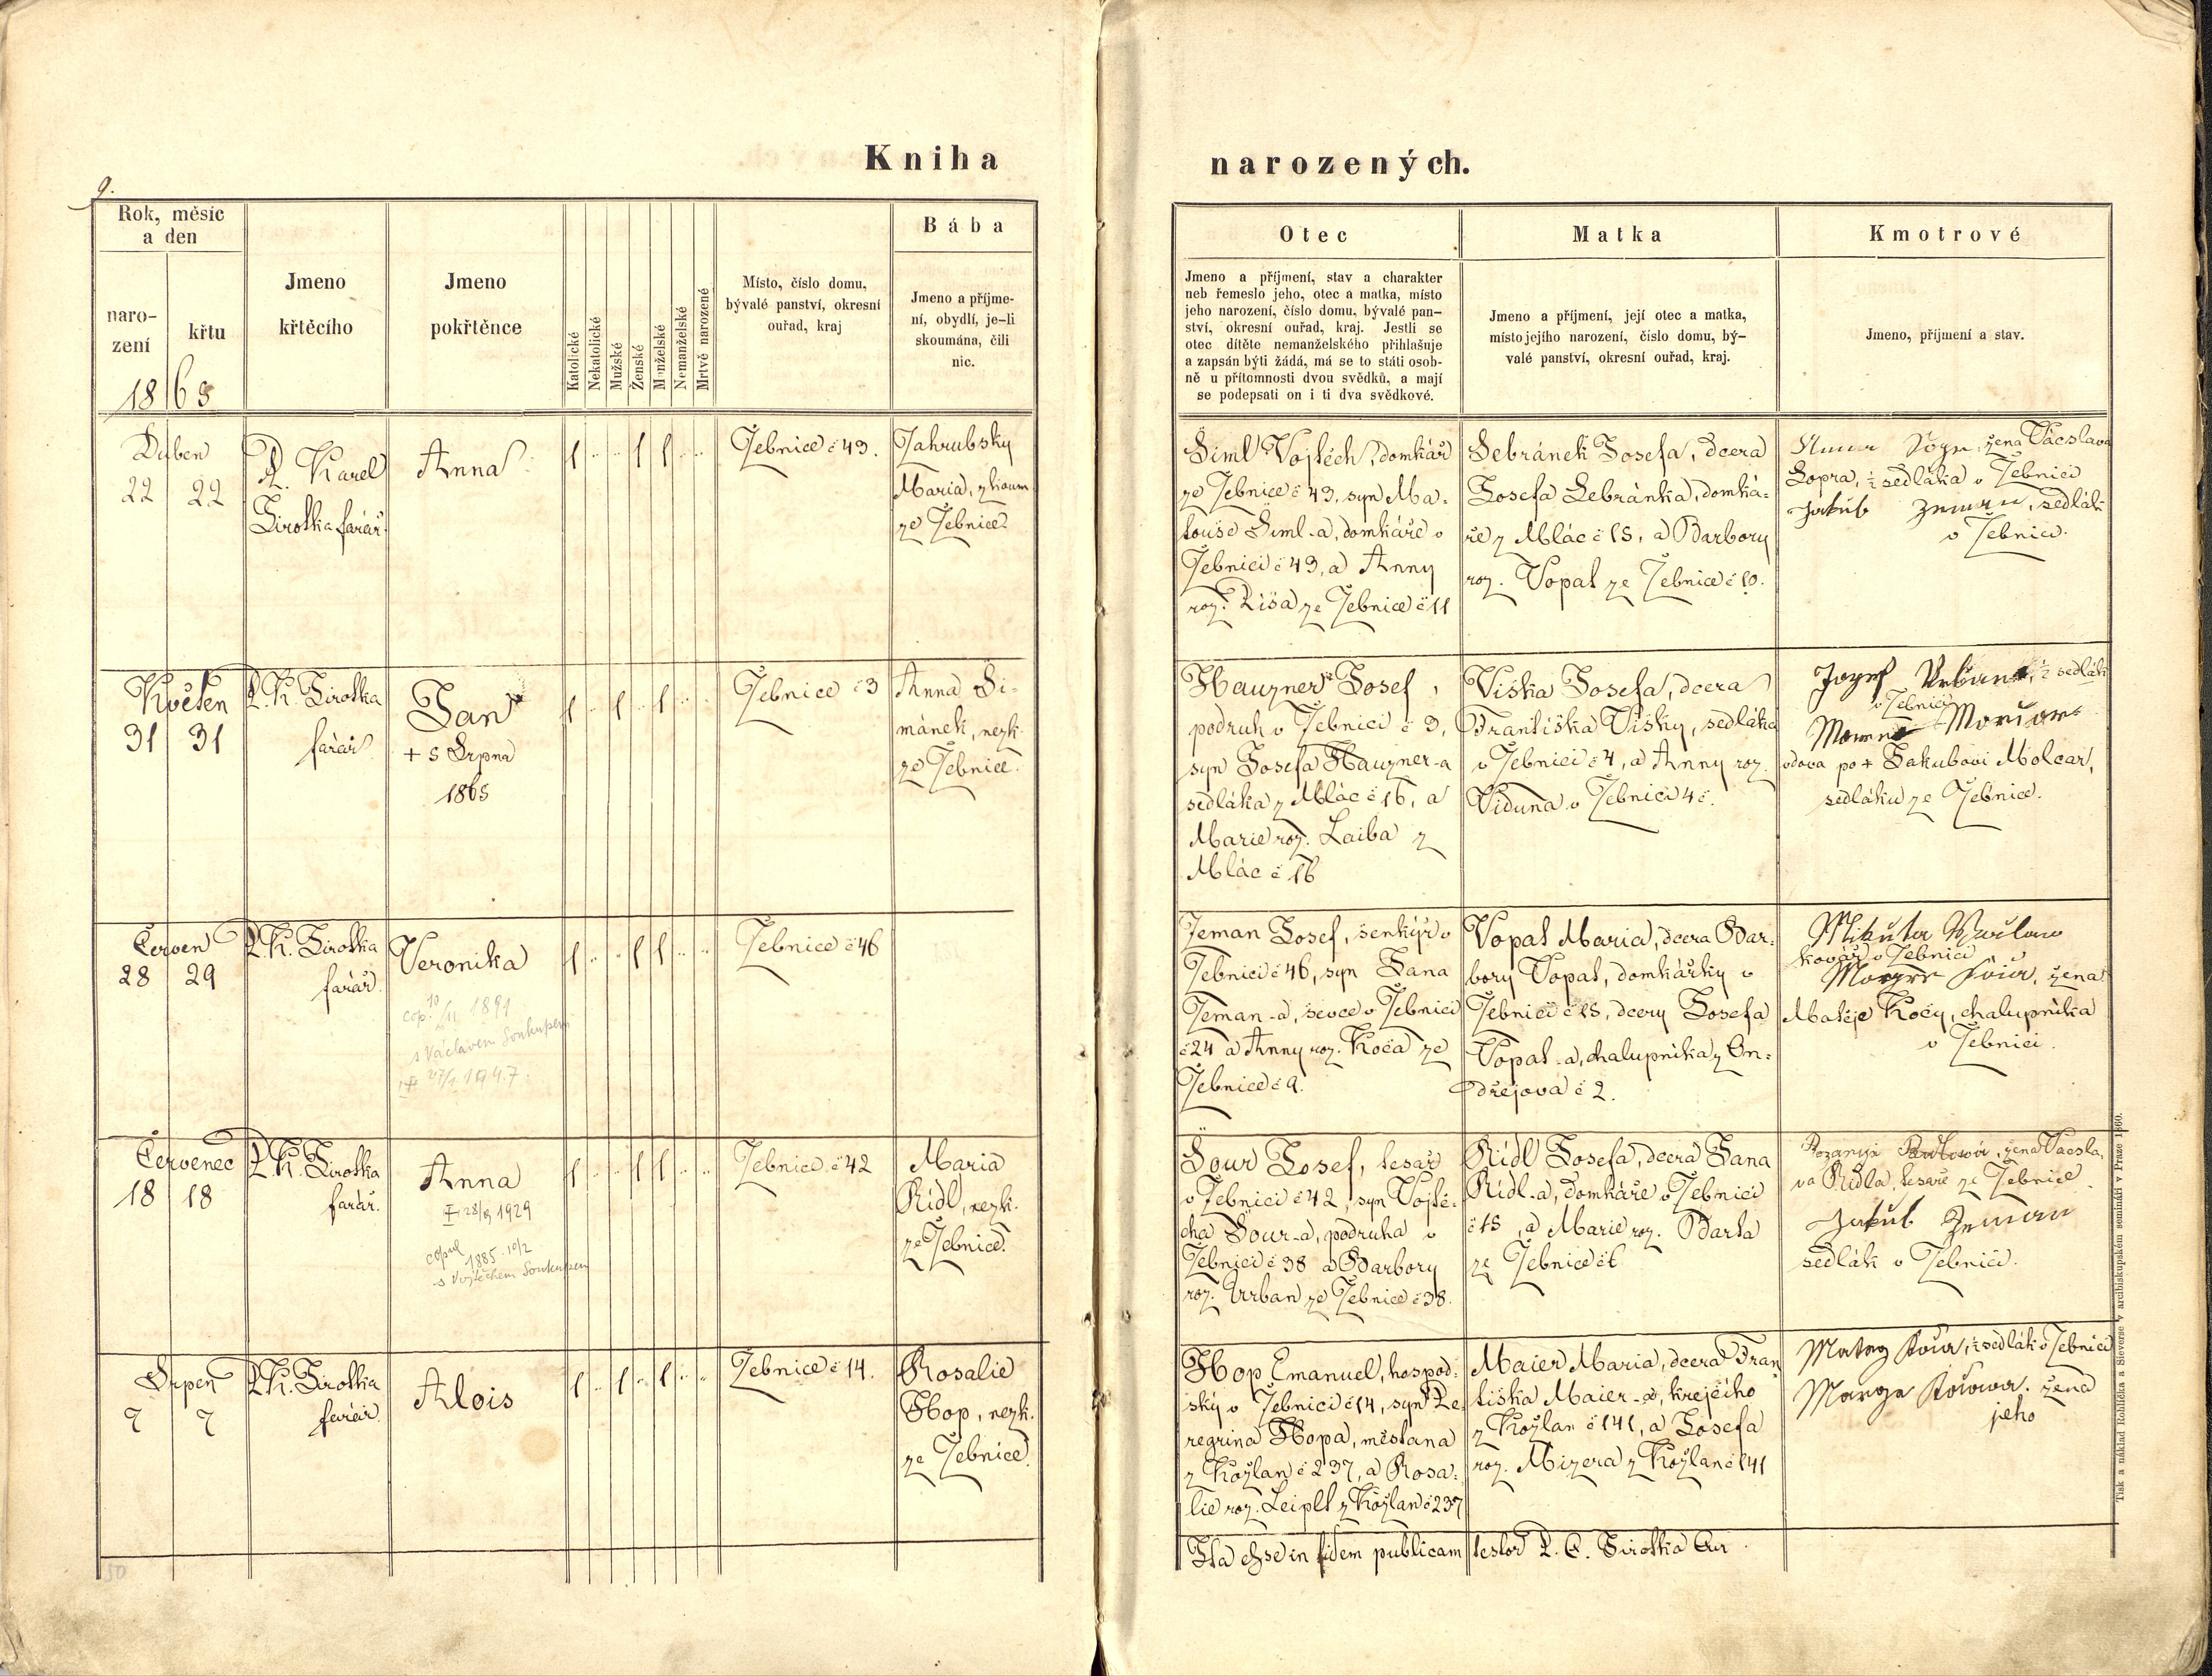 Kniha
narozených.
9.
Rok, měsíc
a den
naro-
zení
křtu
18
Jmeno
křtěcího
Jmeno
pokřtěnce
Katolické
Nekatolické
Mužské
Ženské
Manželské
Nemanželské
Mrtvě narozené
Místo, číslo domu,
bývalé panství, okresní
ouřad, kraj
Bába
Jmeno a příjme-
ní, obydlí, je-li
skoumána, čili
nic.
Otec
Jmeno a příjmení, stav a charakter
neb řemeslo jeho, otec a matka, místo
jeho narození, číslo domu, bývalé pan-
ství, okresní ouřad, kraj. Jestli se
otec dítěte nemanželského přihlašuje
a zapsán býti žádá, má se to státi osob-
ně u přítomnosti dvou svědků, a mají
se podepsati on i ti dva svědkové.
Matka
Jmeno a příjmení, její otec a matka,
místo jejího narození, číslo domu, bý-
valé panství, okresní ouřad, kraj.
Kmotrové
Jmeno, příjmení a stav.
Duben
22 22
P. Karel
Sirotka farář.
Anna
1 1 1
Žebnice č 43.
Zahrubsky
Maria, zkoum.
ze Žebnice.
Šiml Vojtěch, domkář
ze Žebnice č 43, syn Ma-
touše Šiml-a, domkáře v
Žebnici č 43, a Anny
roz. ze Žebnice č 11
Sebránek Josefa, dcera
Josefa Sebránka, domká-
ře z Mlác č 15, a Barbory
roz. Vopat ze Žebnice č 10.
žena Václava
Sopra, ½ sedláka v Žebnici
Jakub Zeman, sedlák
v Žebnici.
Květen
31 31
P. K. Sirotka
farář
Jan
+ 5 Srpna
1865
1 1 1
Žebnice č 3
Anna Ši-
mánek, nezk.
ze Žebnice.
Hauzner Josef,
podruh v Žebnici č 3,
syn Josefa Hauzner-a
sedláka z Mlác č 16, a
Marie roz. Laiba z
Mlác č 16
Viška Josefa, dcera
Františka Višky, sedláka
v Žebnici č 4, a Anny roz.
Viduna v Žebnici 4 č.
Jozef Urban, ½ sedlák
v Žebnici
vdova po + Jakubovi Molcar,
sedláku ze Žebnice.
Červen
28 29
P. K. Sirotka
farář.
Veronika
cop. 10/11 1891
s Václavem Soukupem
+ 27/1 1947.
1 1 1
Žebnice č 46
Zeman Josef, šenkýř v
Žebnici č 46, syn Jana
Zeman-a, ševce v Žebnici
č 24 a Anny roz. Koča ze
Žebnice č 9.
Vopat Maria, dcera Bar-
bory Vopat, domkářky v
Žebnici č 15, dcery Josefa
Vopat-a, chalupníka z On-
dřejova č 2.
Mikuta
kovář v Žebnici
žena
Matěje Kočy, chalupníka
v Žebnici.
Červenec
18 18
P. K. Sirotka
farář.
Anna
+ 28/9 1929
copul
1885 10/2
s Vojtěchem Soukupem
1 1 1
Žebnice č 42
Maria
Rídl, nezk.
ze Žebnice.
Šour Josef, tesař
v Žebnici č 42, syn Vojtě-
cha Šour-a, podruha v
Žebnici č 38 a Barbory
roz. Urban ze Žebnice č 38.
Rídl Josefa, dcera Jana
Rídl-a, domkáře v Žebnici
č 15, a Marie roz. Barta
ze Žebnice č 6
žena Václa-
va Rídla, tesaře ze Žebnice.
Jakub Zeman
sedlák v Žebnici.
Srpen
7 7
P. K. Sirotka
farář.
Alois
1 1 1
Žebnice č 14.
Rosalie
Hop, nezk.
ze Žebnice.
Hop Emanuel, hospod-
ský v Žebnici č 14, syn Pe-
regrina Hopa, měšťana
z Kožlan č 237, a Rosa-
lie roz. Leiplt z Kožlan č 237
Maier Maria, dcera Fran-
tiška Maier-a, krejčího
z Kožlan č 141, a Josefa
roz. Mizera z Kožlan č 141
Matěg Koča, ½ sedlák v Žebnici
žena
jeho
Ita esse in fidem publicam testor P. C. Sirotka Cur.
Tisk a náklad Rohlíčka a Sieversa v arcibiskupském semináři v Praze 1860.